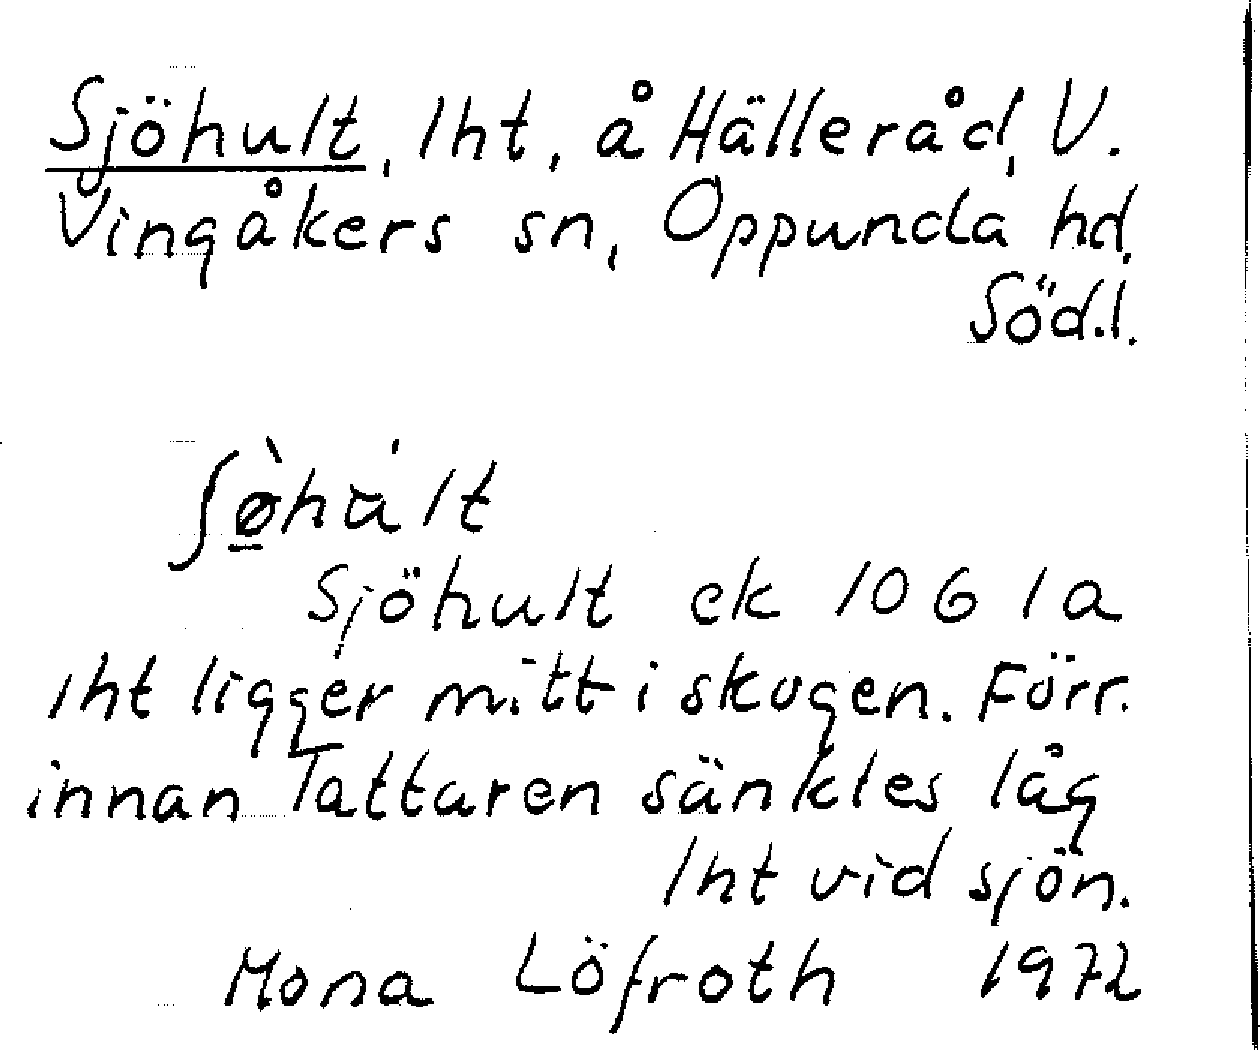 Sjöhult, lht, å Hälleråd, V.
Vingåkers sn, Oppunda hd,
Söd.l.
Sjöhult ek 10 G 1 a
lht ligger mitt i skogen. Förr.
innan Tattaren sänktes låg
lht vid sjön.
Mona Löfroth 1972